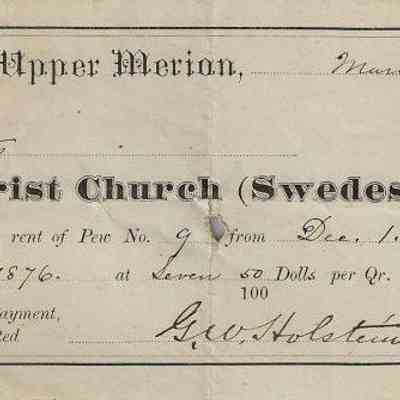 Upper Merion,
rist Church (Swedes
rent of Pew No. 9 from Dec. 1.
1876. at seven 50/100 Dolls per Qr.
ayment,
ed G.W. Holstein